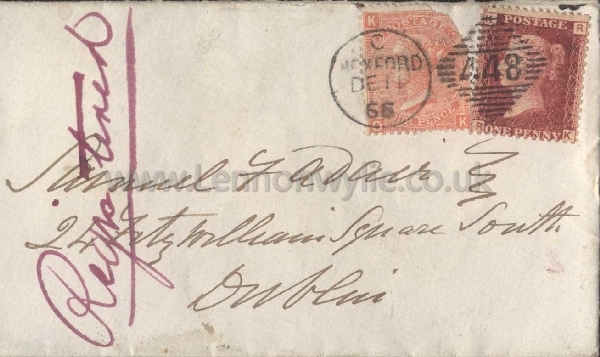 K
C
DE 11
66
PENCE
O K
POSTAGE
R
448
R ONE PENNY K
Registered
Samuel F Adair Esq
www.Lennonwylie.co.uk
24 Fitzwilliam Square South
Dublin